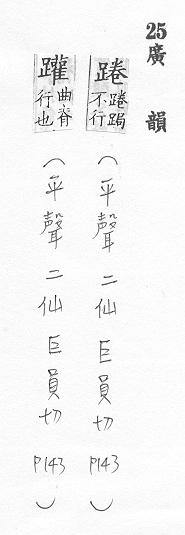 25廣韻
踡踡跼不行（平聲二仙巨員切P143）
躍曲脊行也（平聲二仙巨員切P143）